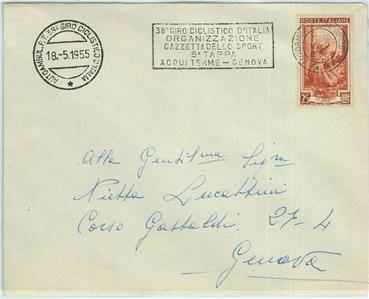 AUTOAMBUL. P.T. 38° GIRO CICLISTICO D'ITALIA
18.-5.1955
38° GIRO CICLISTICO D'ITALIA
ORGANIZZAZIONE
GAZZETTA DELLO SPORT
5ª TAPPA
ACQUI TERME - GENOVA
POSTE ITALIANE
Alla Gentilma Sigra
Nietta Lucattini
Corso Gastaldi 27-4
Genova